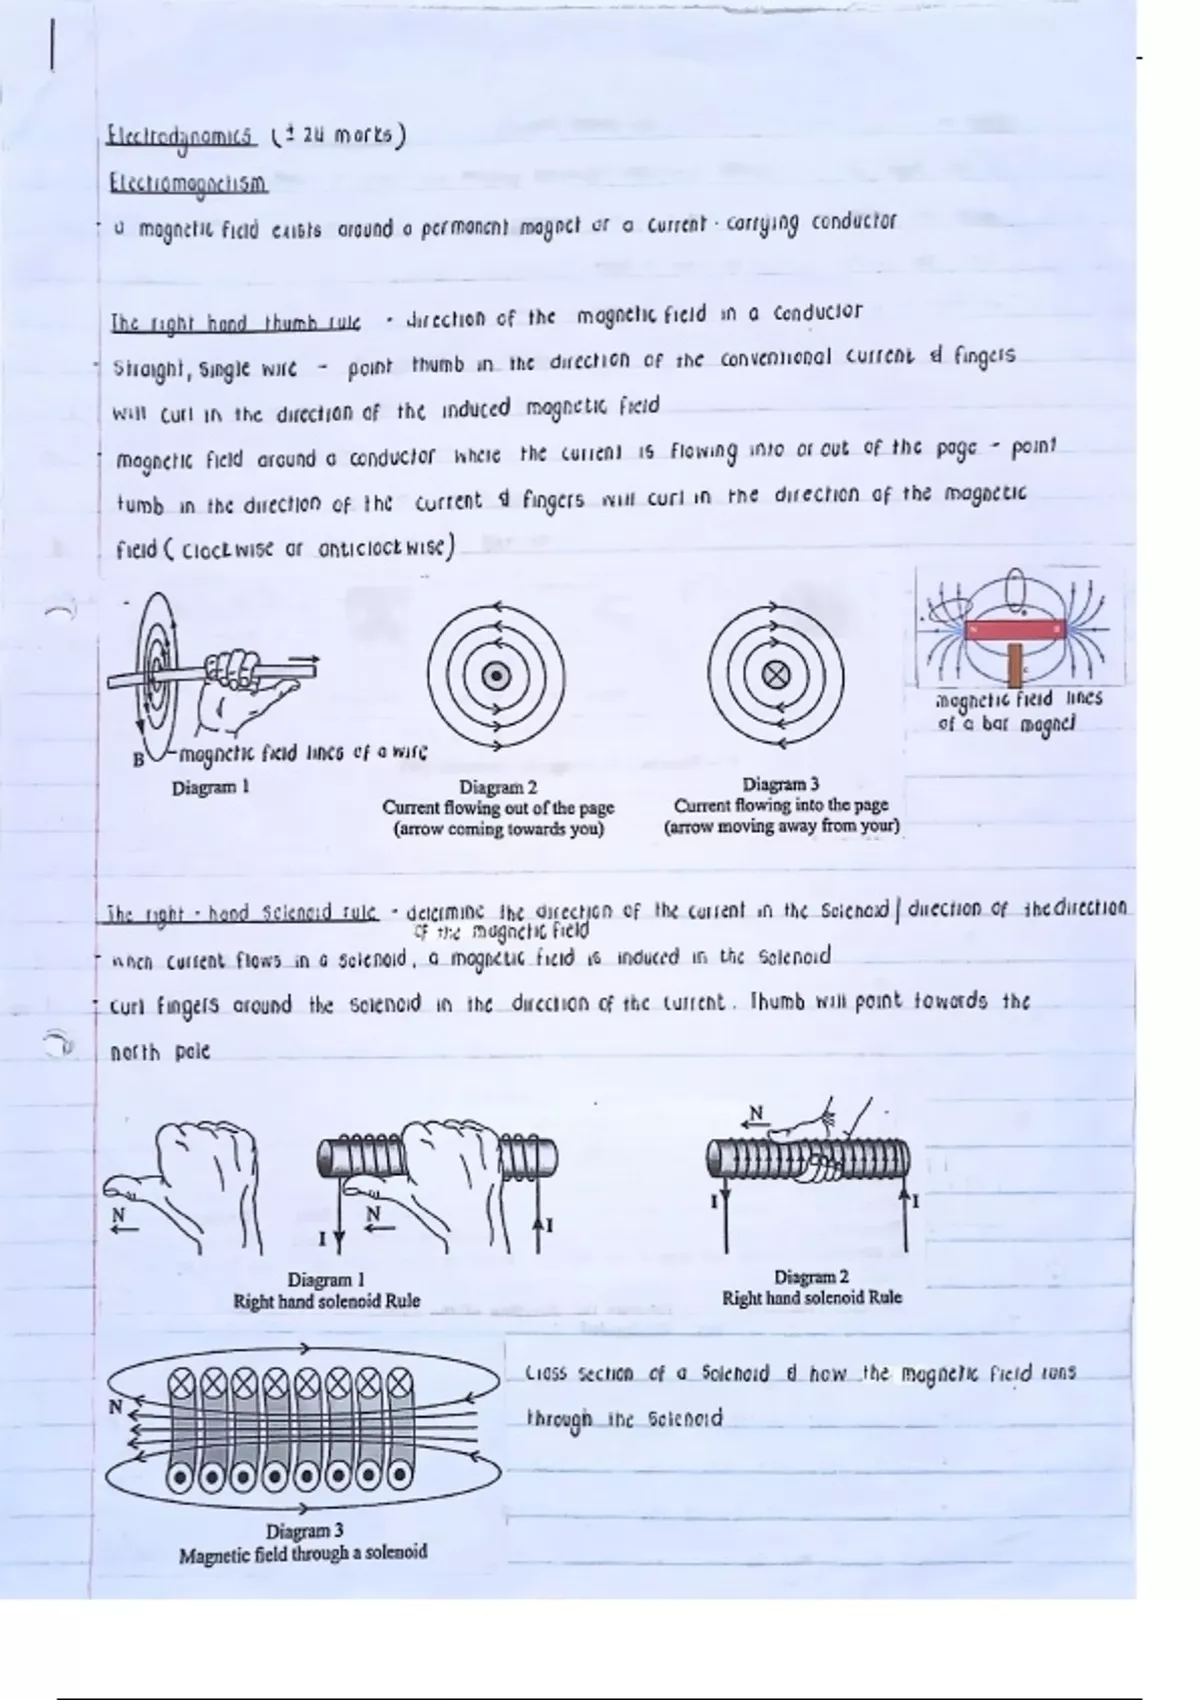 Electrodynamics (± 24 marks)
Electromagnetism
- a magnetic field exists around a permanent magnet or a current-carrying conductor
The right hand thumb rule - direction of the magnetic field in a conductor
- Straight, single wire - point thumb in the direction of the conventional current & fingers
will curl in the direction of the induced magnetic field
- magnetic field around a conductor where the current is flowing into or out of the page - point
tumb in the direction of the current & fingers will curl in the direction of the magnetic
field (clockwise or anticlockwise)
B
magnetic field lines of a wire
Diagram 1
Diagram 2
Current flowing out of the page
(arrow coming towards you)
Diagram 3
Current flowing into the page
(arrow moving away from your)
magnetic field lines
of a bar magnet
The right-hand Solenoid rule - determine the direction of the current in the Solenoid / direction of the direction
of the magnetic field
- when current flows in a solenoid, a magnetic field is induced in the solenoid
- curl fingers around the solenoid in the direction of the current. Thumb will point towards the
north pole
N
I
N
I
Diagram 1
Right hand solenoid Rule
N
I
I
Diagram 2
Right hand solenoid Rule
N
Diagram 3
Magnetic field through a solenoid
Cross section of a Solenoid & how the magnetic field runs
through the Solenoid